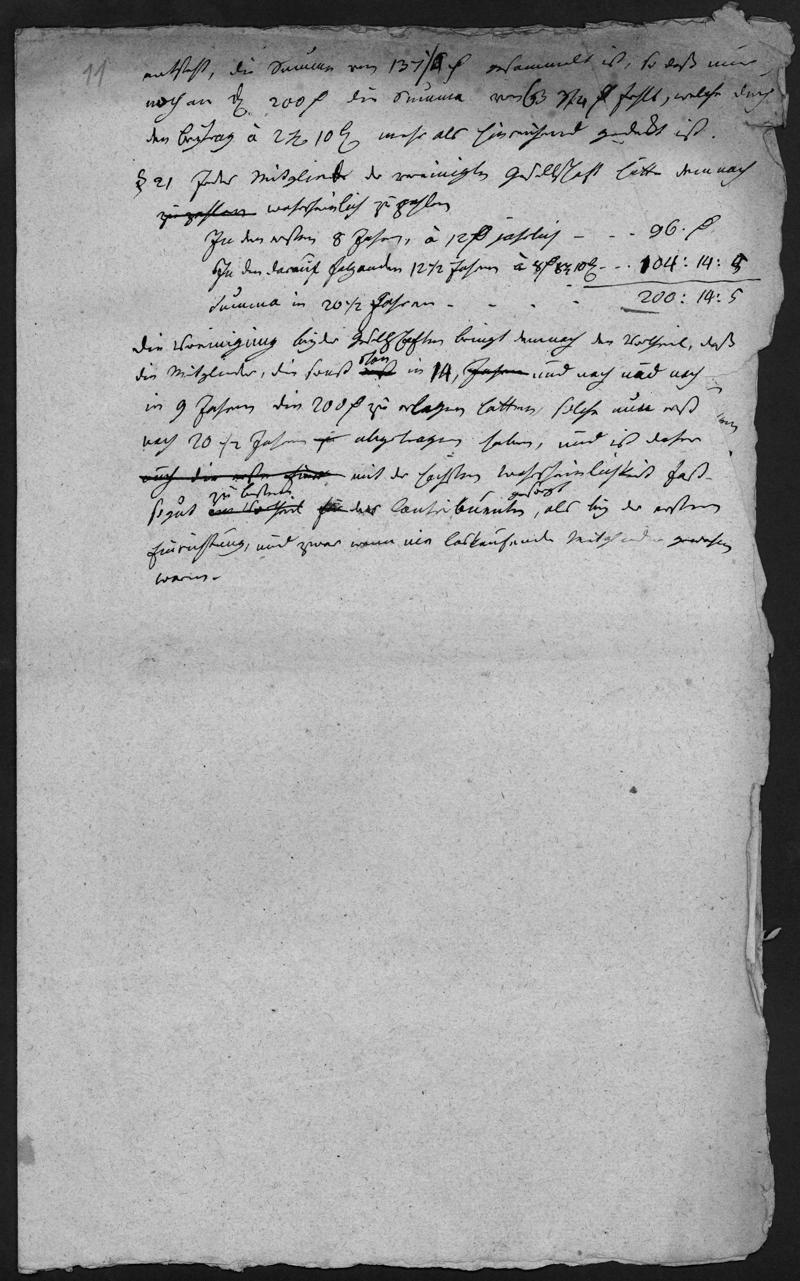 11
entsteht, die Summa von 137 gesammelt ist, so daß nun
noch an 200 die Summa von fehlt, welche durch
den Beytrag à 2 10 mehr als hinreichend gedekt ist.
§ 21 Jedes Mitglied der vereinigten Gesellschaft hätte demnach
zu zahlen wahrscheinlich zu zahlen
In den ersten 8 Jahren, à 12 jährlich - - - 96.
In den darauf folgenden 12 1/2 Jahren à 8 - - 104: 14: 5
Summa in 20 1/2 Jahren - - - - 200: 14: 5
Die Vereinigung beyder Gesellschaften bringt demnach den Vortheil, daß
die Mitglieder, die sonst schon in 14, Jahren und nach und nach
in 9 Jahren die 200 zu erlegen hätten, solche nun erst
nach 20 1/2 Jahren abgetragen haben, und ist daher
auch die mit der höchsten Wahrscheinlichkeit fast
so gut der Contribuenten gesorgt, als bey der ersten
Einrichtung, und zwar wenn nie loskaufende Mitglieder gewesen
wären.